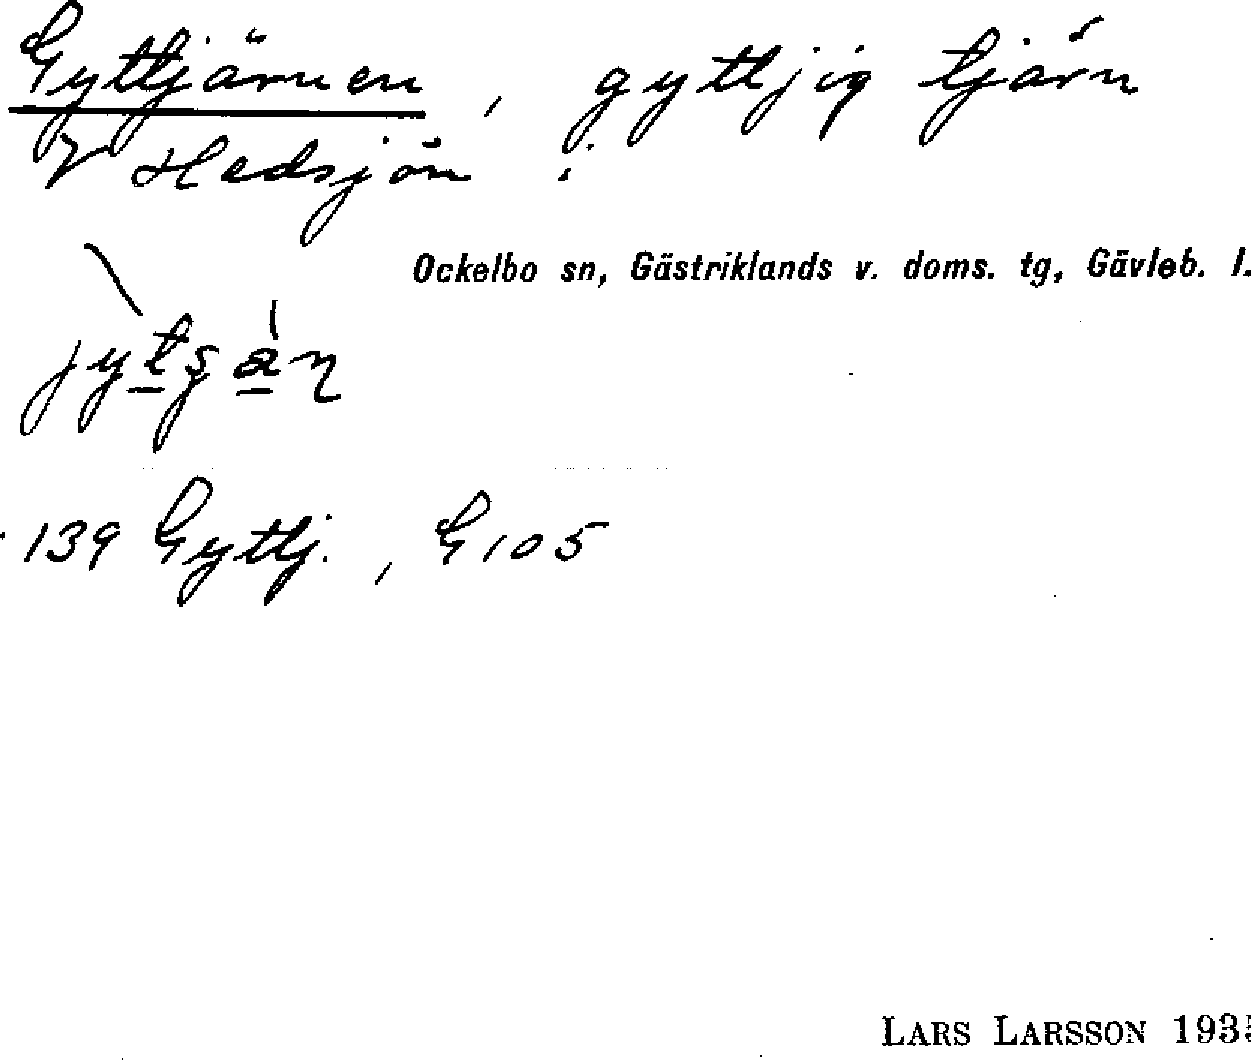 Gyttjärnen, gyttjig tjärn
V Hedsjön :
Ockelbo sn, Gästriklands v. doms. tg, Gävleb. l.
139 Gyttj., G 105
LARS LARSSON 1935